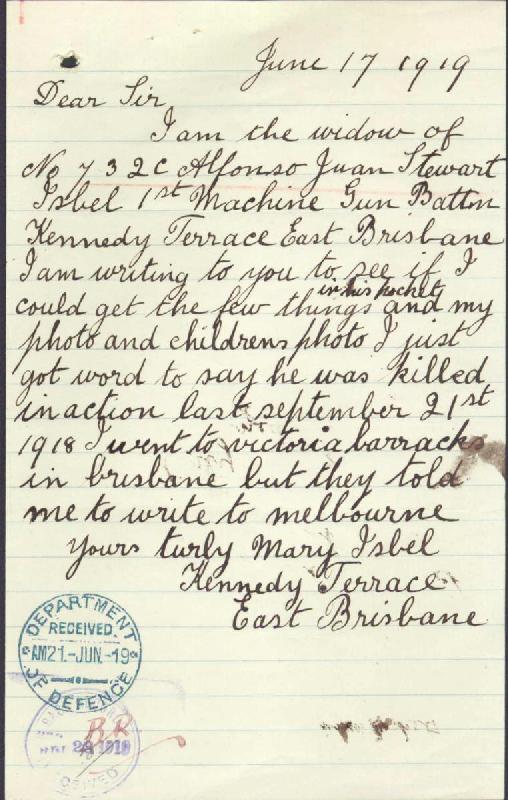 June 17 1919
Dear Sir
I am the widow of
No 732C Alfonso Juan Stewart
Isbel 1st Machine Gun Battn
Kennedy Terrace East Brisbane
I am writing to you to see if I
in his pocket
could get the few things and my
photo and childrens photo I just
got word to say he was killed
in action last september 21st
1918 I went to victoria barracks
in brisbane but they told
me to write to melbourne
yours turly Mary Isbel
Kennedy Terrace
East Brisbane
DEPARTMENT
RECEIVED.
AM21.-JUN.-19
OF DEFENCE
BR
1919